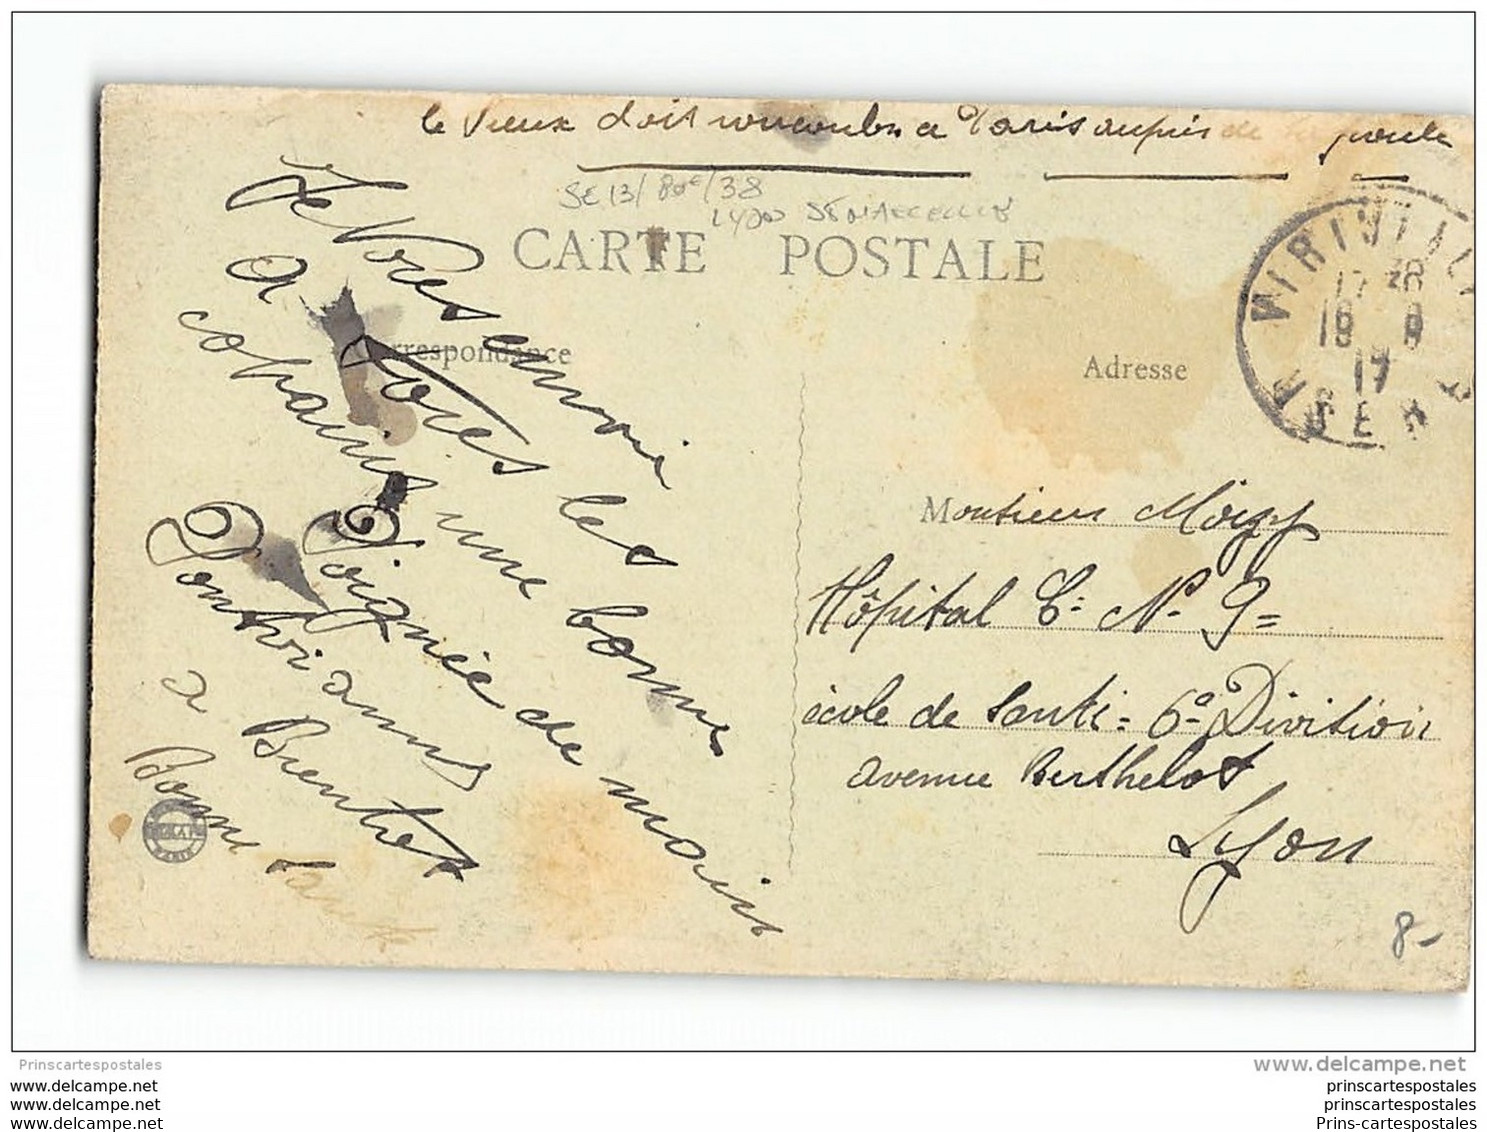 le vieux doit roucouler a Paris auprès de sa poule
SE 13/ 80c/38
LYON ST MARCELLIN
CARTE POSTALE
Correspondance
Adresse
VIRIVILLE
17 30
18 8
17
ISERE
Je vous envoi
a tous les
copains une bonne
Poignée de main
Pontvianne
a Bientot
Bonne Santé
Monsieur Moizy
Hôpital C: N- 9=
école de Santé = 6e Division
avenue Berthelot
Lyon
PARIS
8-
Prinscartespostales
www.delcampe.net
www.delcampe.net
prinscartespostales
www.delcampe.net
prinscartespostales
www.delcampe.net
Prins-cartespostales